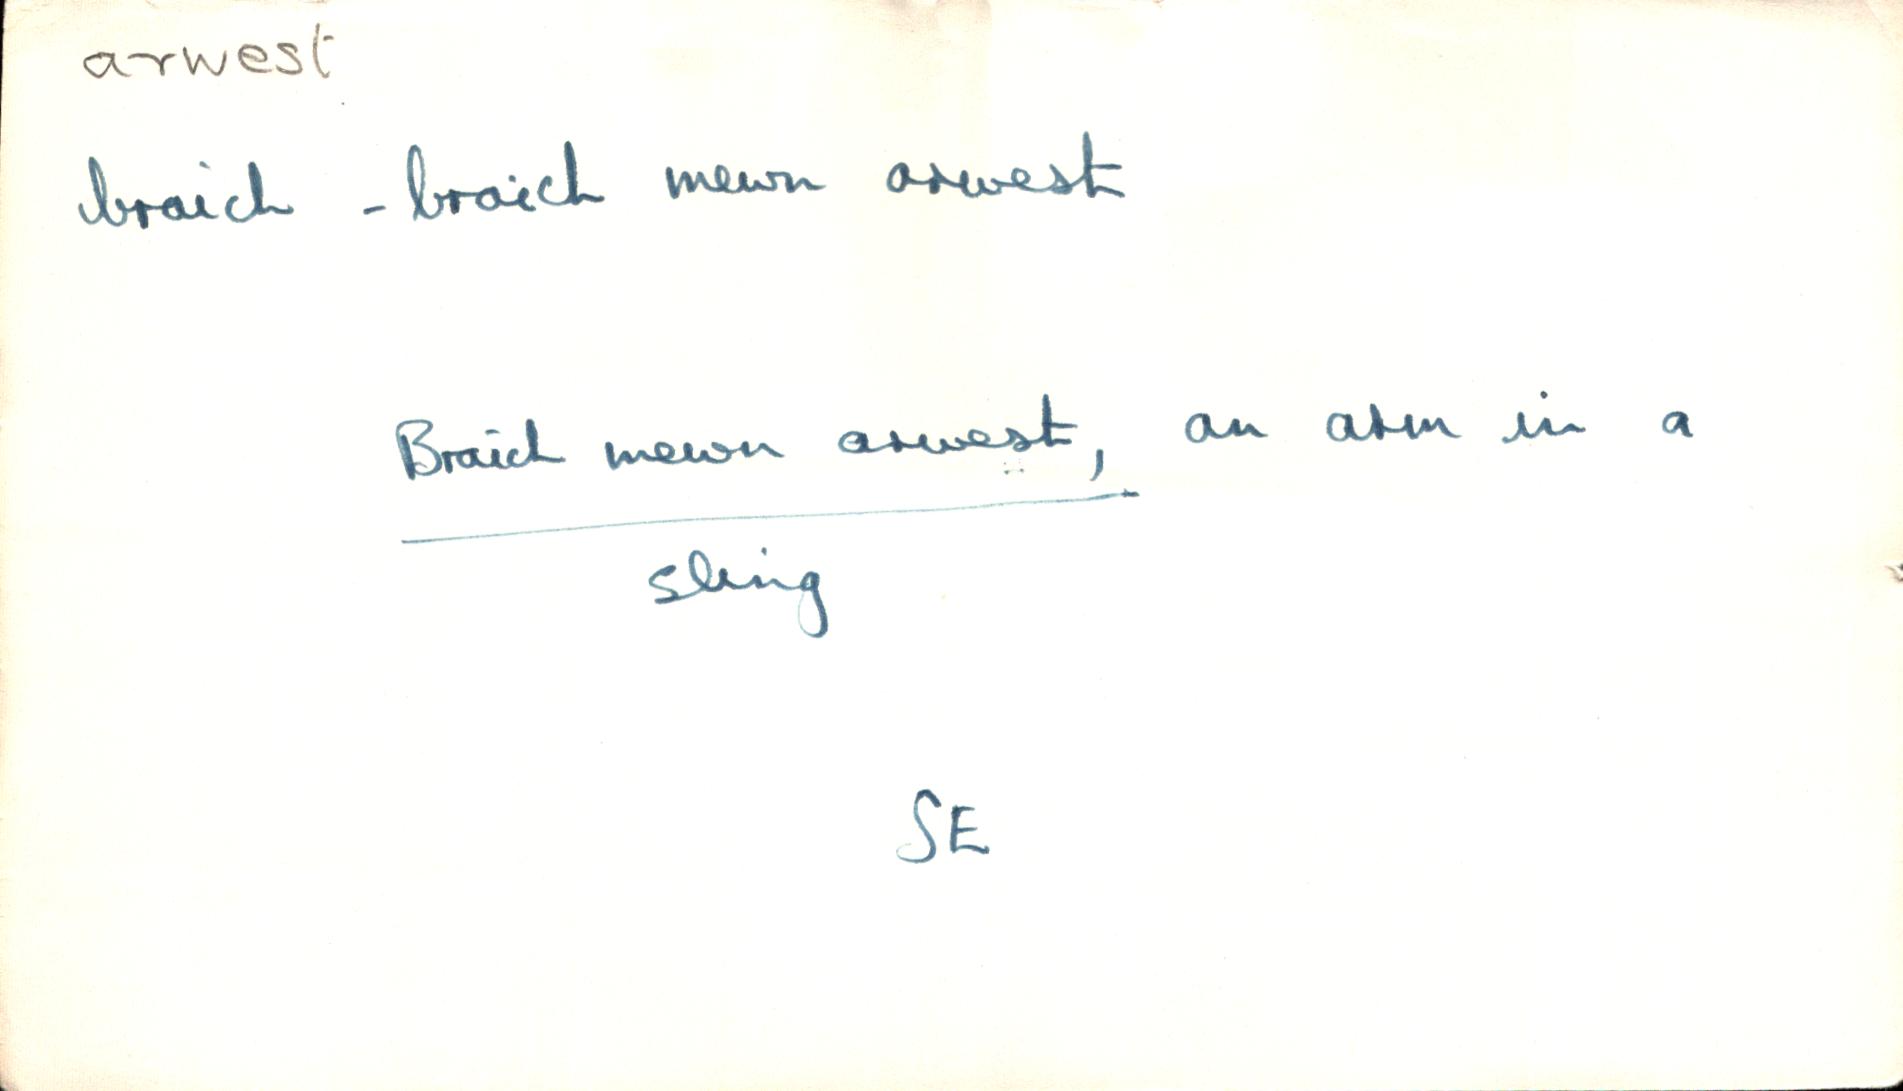 arwest
braich - braich mewn arwest
Braich mewn arwest, an arm in a
sling
SE